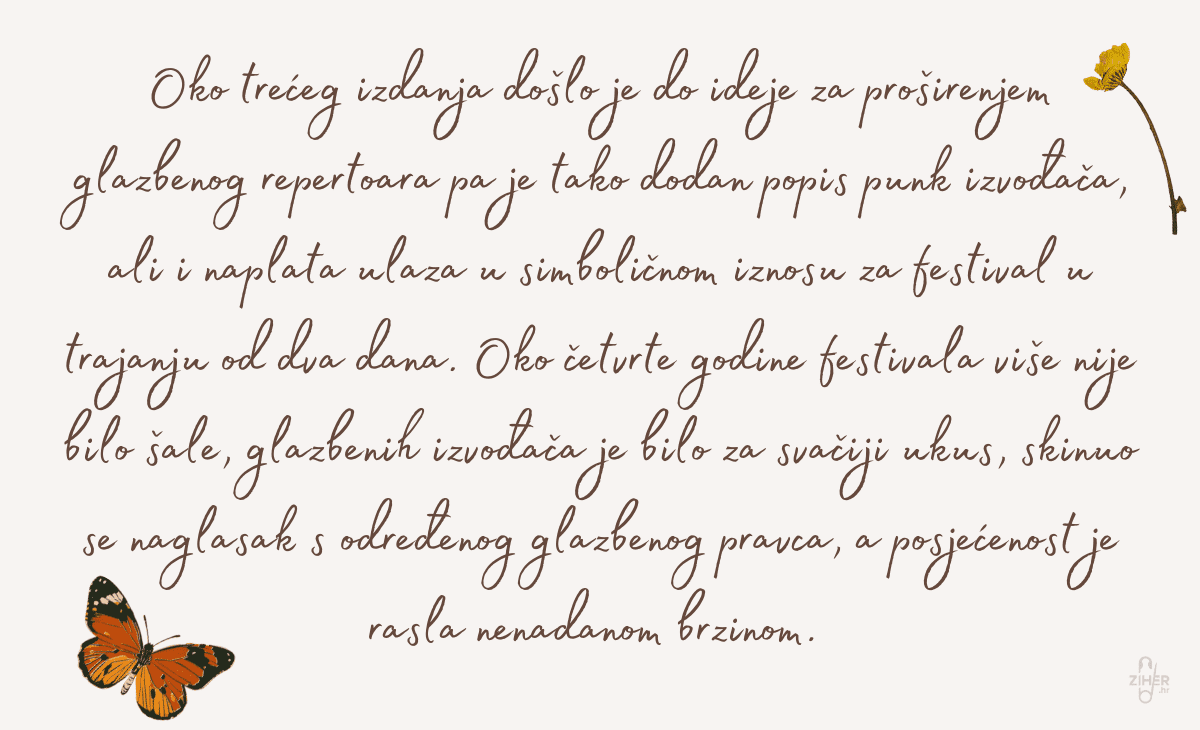 Oko trećeg izdanja došlo je do ideje za proširenjem
glazbenog repertoara pa je tako dodan popis punk izvođača,
ali i naplata ulaza u simboličnom iznosu za festival u
trajanju od dva dana. Oko četvrte godine festivala više nije
bilo šale, glazbenih izvođača je bilo za svačiji ukus, skinuo
se naglasak s određenog glazbenog pravca, a posjećenost je
rasla nenadanom brzinom.
ZIHER
.hr